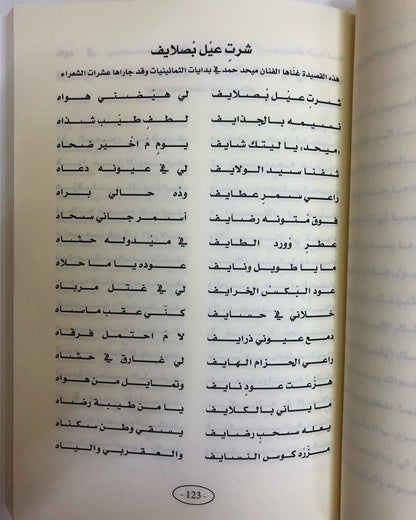 شرتِ عيْل بْصلايف
هذه القصيدة غناها الفنان ميحد حمد في بدايات الثمانينيات وقد جاراها عشرات الشعراء
شرتِ عيْل بْصلايف لي هيّضني هواه
نسيمه بالجذايف لطفٍ طيّب شذاه
«ميحد» يا ليتك شايف يومٍ مَ اخْيَر ضحاه
شفنا سيد الولايف لي في عيونه دعاه
راعي سمرٍ عطايف ودّه حالي براه
فوق مْتونه رضايف أسمر جاني سحاه
عطرٍ وْورد الطايف في ميْدوله حشاه
ما يا طويل ونايف عوده يا ما حلاه
عود البكس الخرايف لي في غتل مرباه
خلاني في حسايف كنّي عقب ماساه
دمع عيوني ذرايف لا مَ احتمل فرقاه
راعي الحزام الهايف لي غارق في حشاه
هزّعت عودٍ نايف وتمايل من هواه
ما ياني بالكلايف يا من طيبة رضاه
يعله سحبٍ رضايف يسقي وطن سكناه
مزْره كوس النسايف والعقربي والياه
-123-